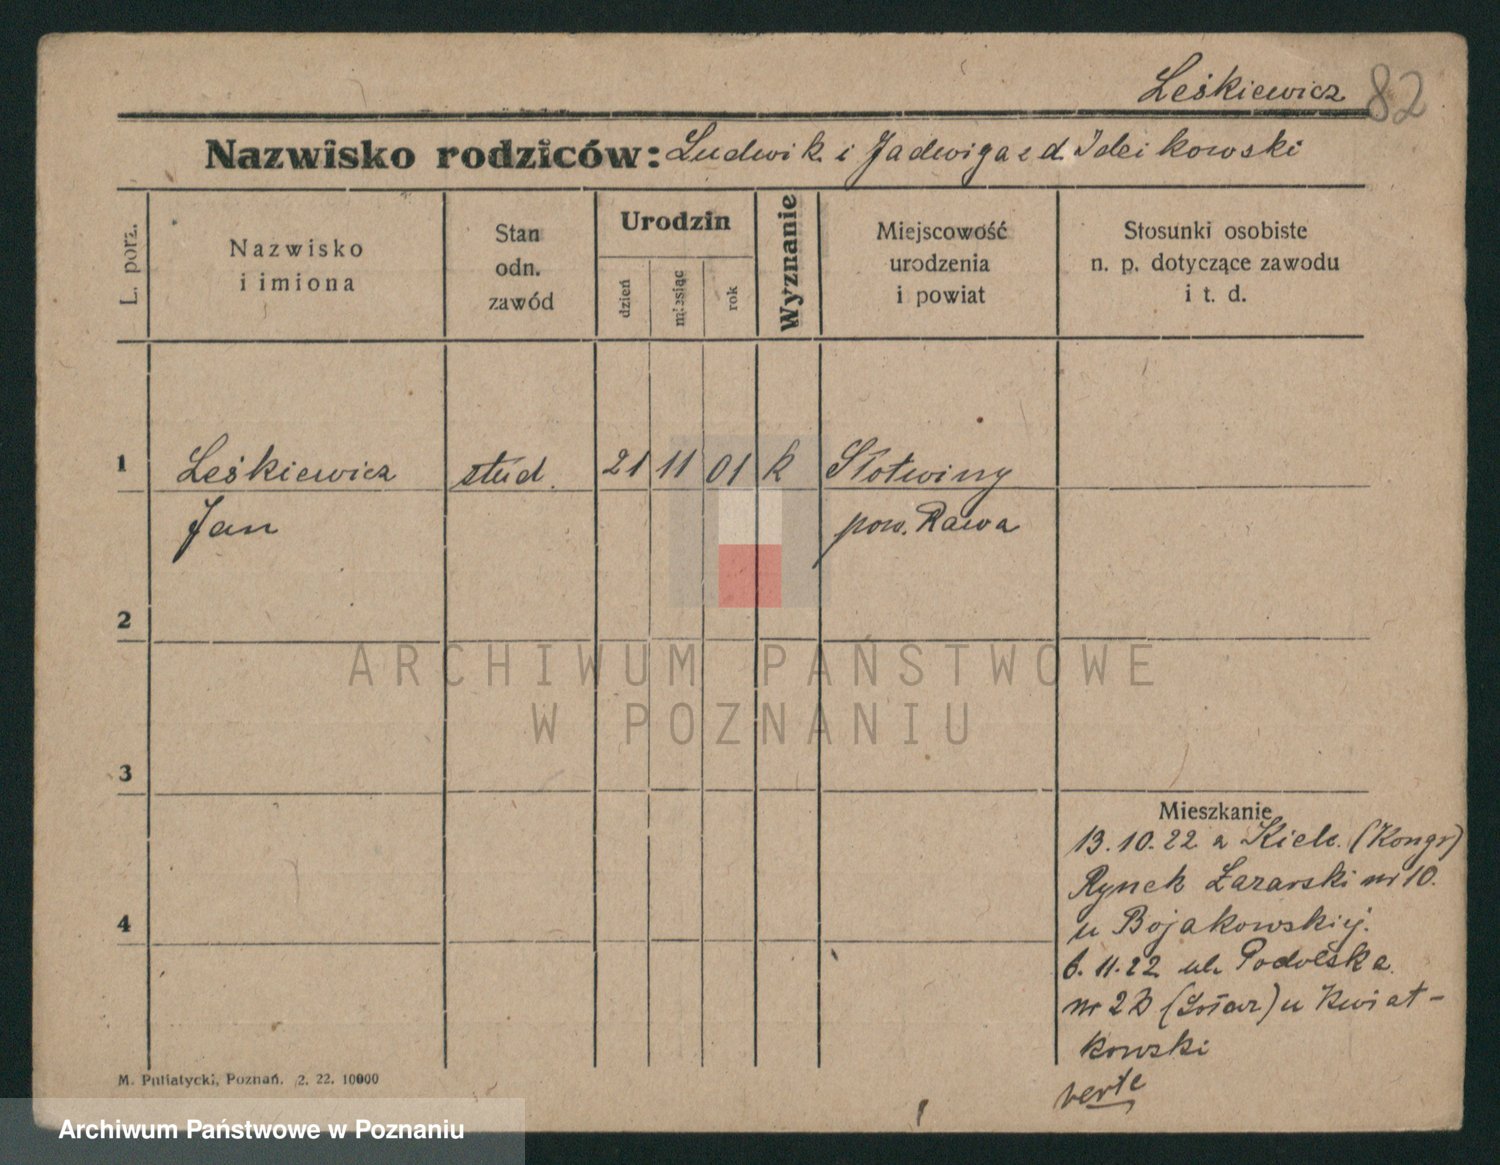 Leśkiewicz 82
Nazwisko rodziców: Ludwik i Jadwiga z d.
L. porz.
Nazwisko
i imiona
Stan
odn.
zawód
Urodzin
dzień
miesiąc
rok
Wyznanie
Miejscowość
urodzenia
i powiat
Stosunki osobiste
n. p. dotyczące zawodu
i t. d.
1 Leśkiewicz stud. 21 11 01 k Słotwiny
Jan pow. Rawa
2
ARCHIWUM PAŃSTWOWE
W POZNANIU
3
Mieszkanie
13.10.22 z Kielc. (Kongr)
Rynek Łazarski nr 10.
4
u Bojakowskiej.
6.11.22 ul. Podolska
nr 2B (Sołacz) u Kwiat-
kowski
verte
M. Putiatycki, Poznań. 2. 22. 10000
Archiwum Państwowe w Poznaniu